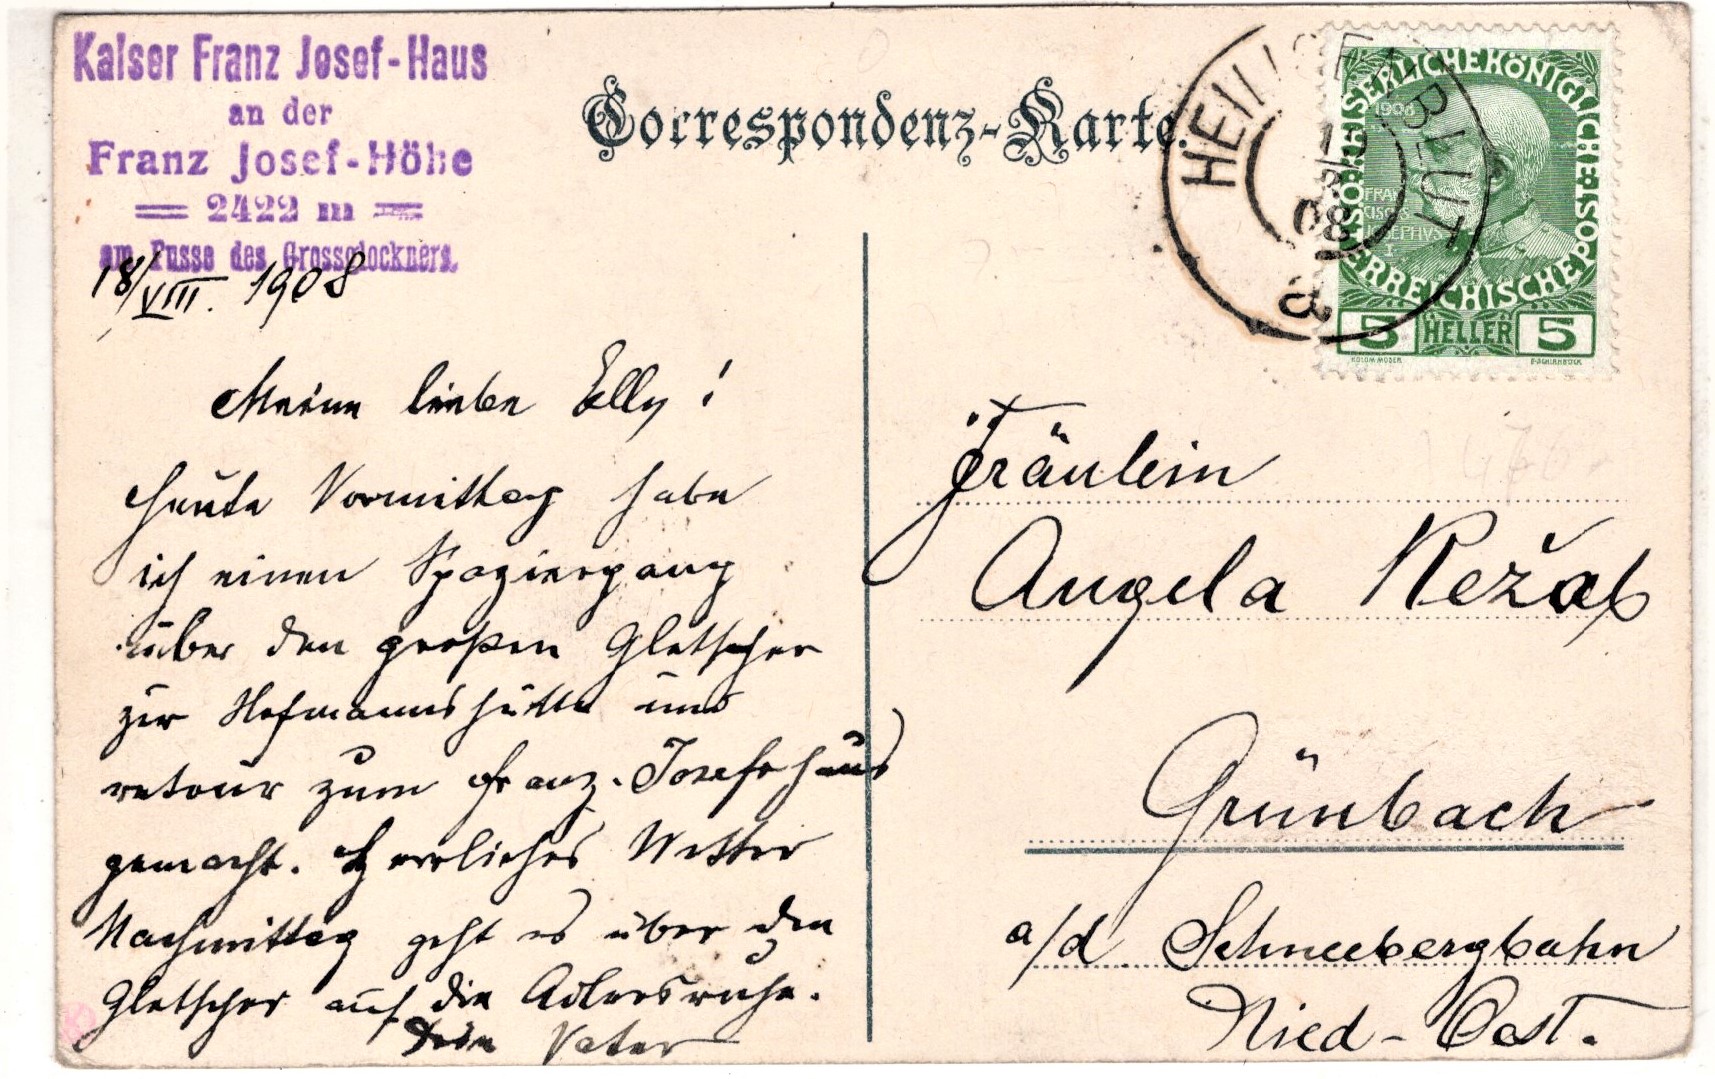 Kaiser Franz Josef-Haus
an der
Franz Josef-Höhe
2422 m
am Fusse des Grossglockners.
Correspondenz-Karte.
HEILIGENBLUT
08
KAISERLICHE KÖNIGLICHE ÖSTERREICHISCHE POST
1908
FRAN
CISCVS
IOSEPHVS
I
5 HELLER 5
KOLOM·MOSER
F·SCHIRNBÖCK
18/VIII. 1908
Meine liebe Elly!
Heute Vormittag habe
ich einen Spaziergang
über den großen Gletscher
zur Hofmannshütte und
retour zum Franz-Josefshaus
gemacht. Herrliches Wetter
Nachmittag geht es über den
Gletscher auf die Adlersruhe.
Dein Vater
Fräulein
Angela Režab
Grünbach
a/d Schneebergbahn
Nied-Oest.